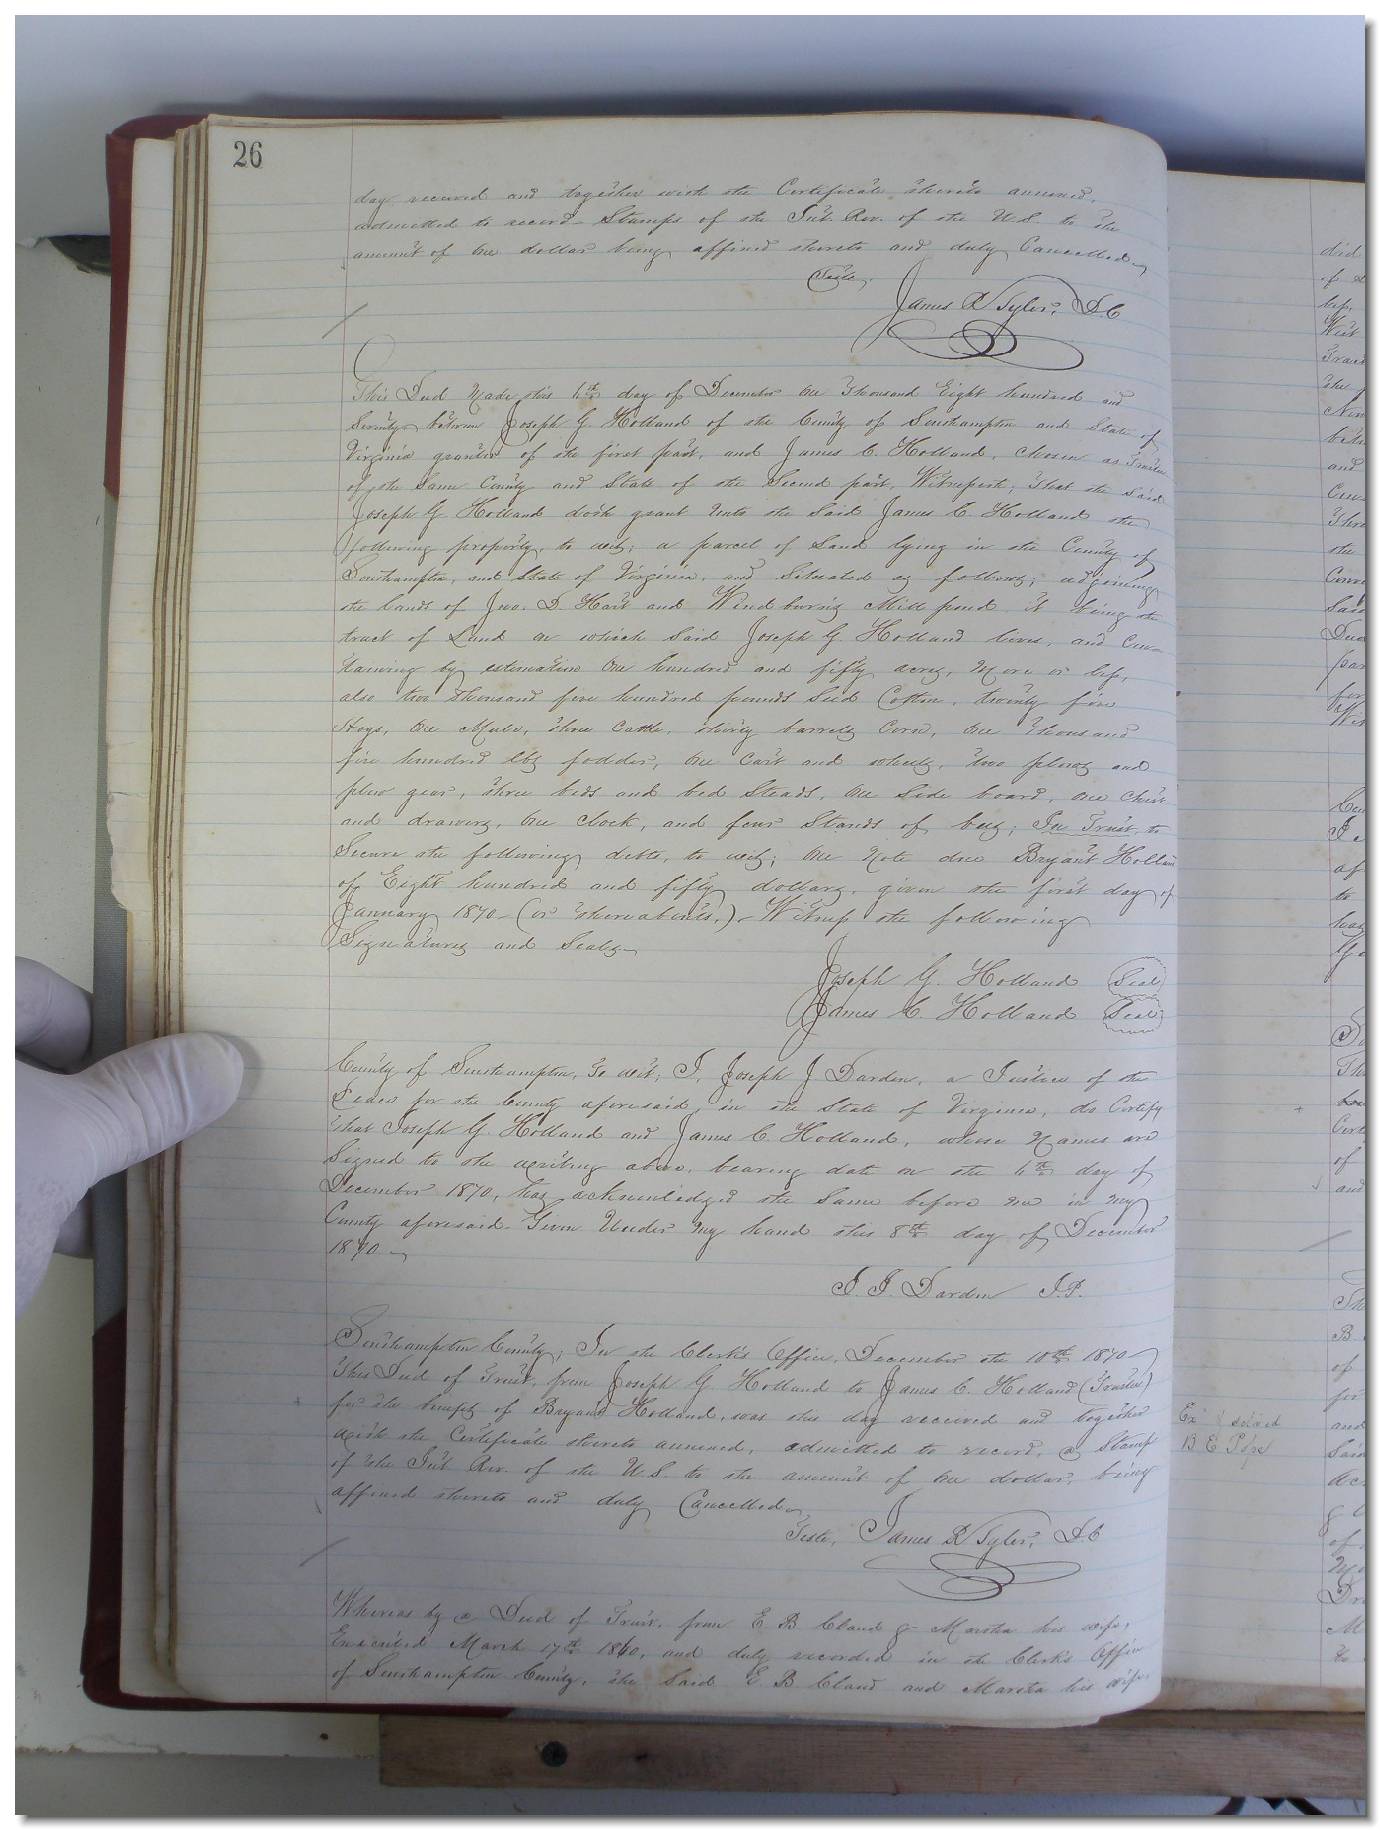 26
day received and together with the Certificate thereto annexed,
admitted to record. Stamps of the Int. Rev. of the U.S. to the
amount of One dollar being affixed thereto and duly Cancelled
Teste,
James R Tyler, D.C
This Deed Made this day of December One Thousand Eight hundred and
Seventy between Joseph G. Holland of the County of Southampton and State of
Virginia grantor of the first part, and James C. Holland, chosen as Trustee
of the Same County and State of the Second part, Witnesseth; That the said
Joseph G Holland doth grant Unto the Said James C. Holland the
following property, to wit; a parcel of Land lying in the County of
Southampton, and State of Virginia, and Situated as follows; adjoining
the lands of Jno. D. Hart and Windburn's Mill pond it being the
tract of Land on which Said Joseph G. Holland lives, and Con-
taining by estimation One hundred and fifty acres, More or less,
also two thousand five hundred pounds Seed Cotton, twenty five
Hogs, One Mule, three Cattle, thirty barrels Corn, One thousand
five hundred lbs fodder, One Cart and wheels, two plows and
plow gear, three beds and bed Steads, One Side board, One Chest
and drawers, One Clock, and four Stands of bees; In Trust, to
Secure the following debts, to wit; One Note due Bryant Holland
of Eight hundred and fifty dollars, given the first day of
January 1870 - (or thereabouts.) - Witness the following
Signatures and Seals
Joseph G. Holland Seal
James C. Holland Seal
County of Southampton, To wit; I, Joseph J Darden, a Justice of the
Peace for the County aforesaid, in the State of Virginia, do Certify
that Joseph G. Holland and James C. Holland, whose Names are
Signed to the writing above, bearing date on the day of
December 1870, has acknowledged the Same before me in my
County aforesaid. Given Under My hand this 8th day of December
1870
J. J. Darden J.P.
Southampton County; In the Clerk's Office, December the 10th 1870
This Deed of Trust, from Joseph G Holland to James C. Holland (Trustee)
for the benefit of Bryant Holland, was this day received and together
with the Certificate thereto annexed, admitted to record, a Stamp
of the Int. Rev. of the U.S. to the amount of One dollar, being
affixed thereto and duly Cancelled
Teste, James R Tyler, D.C
Whereas by a Deed of Trust, from E B Claud & Martha his wife,
Executed March 17th and duly recorded in the Clerk's Office
of Southampton County, the Said E B Claud and Martha his wife
did
the
and
the
and
to
of
and
of
for
and
Said